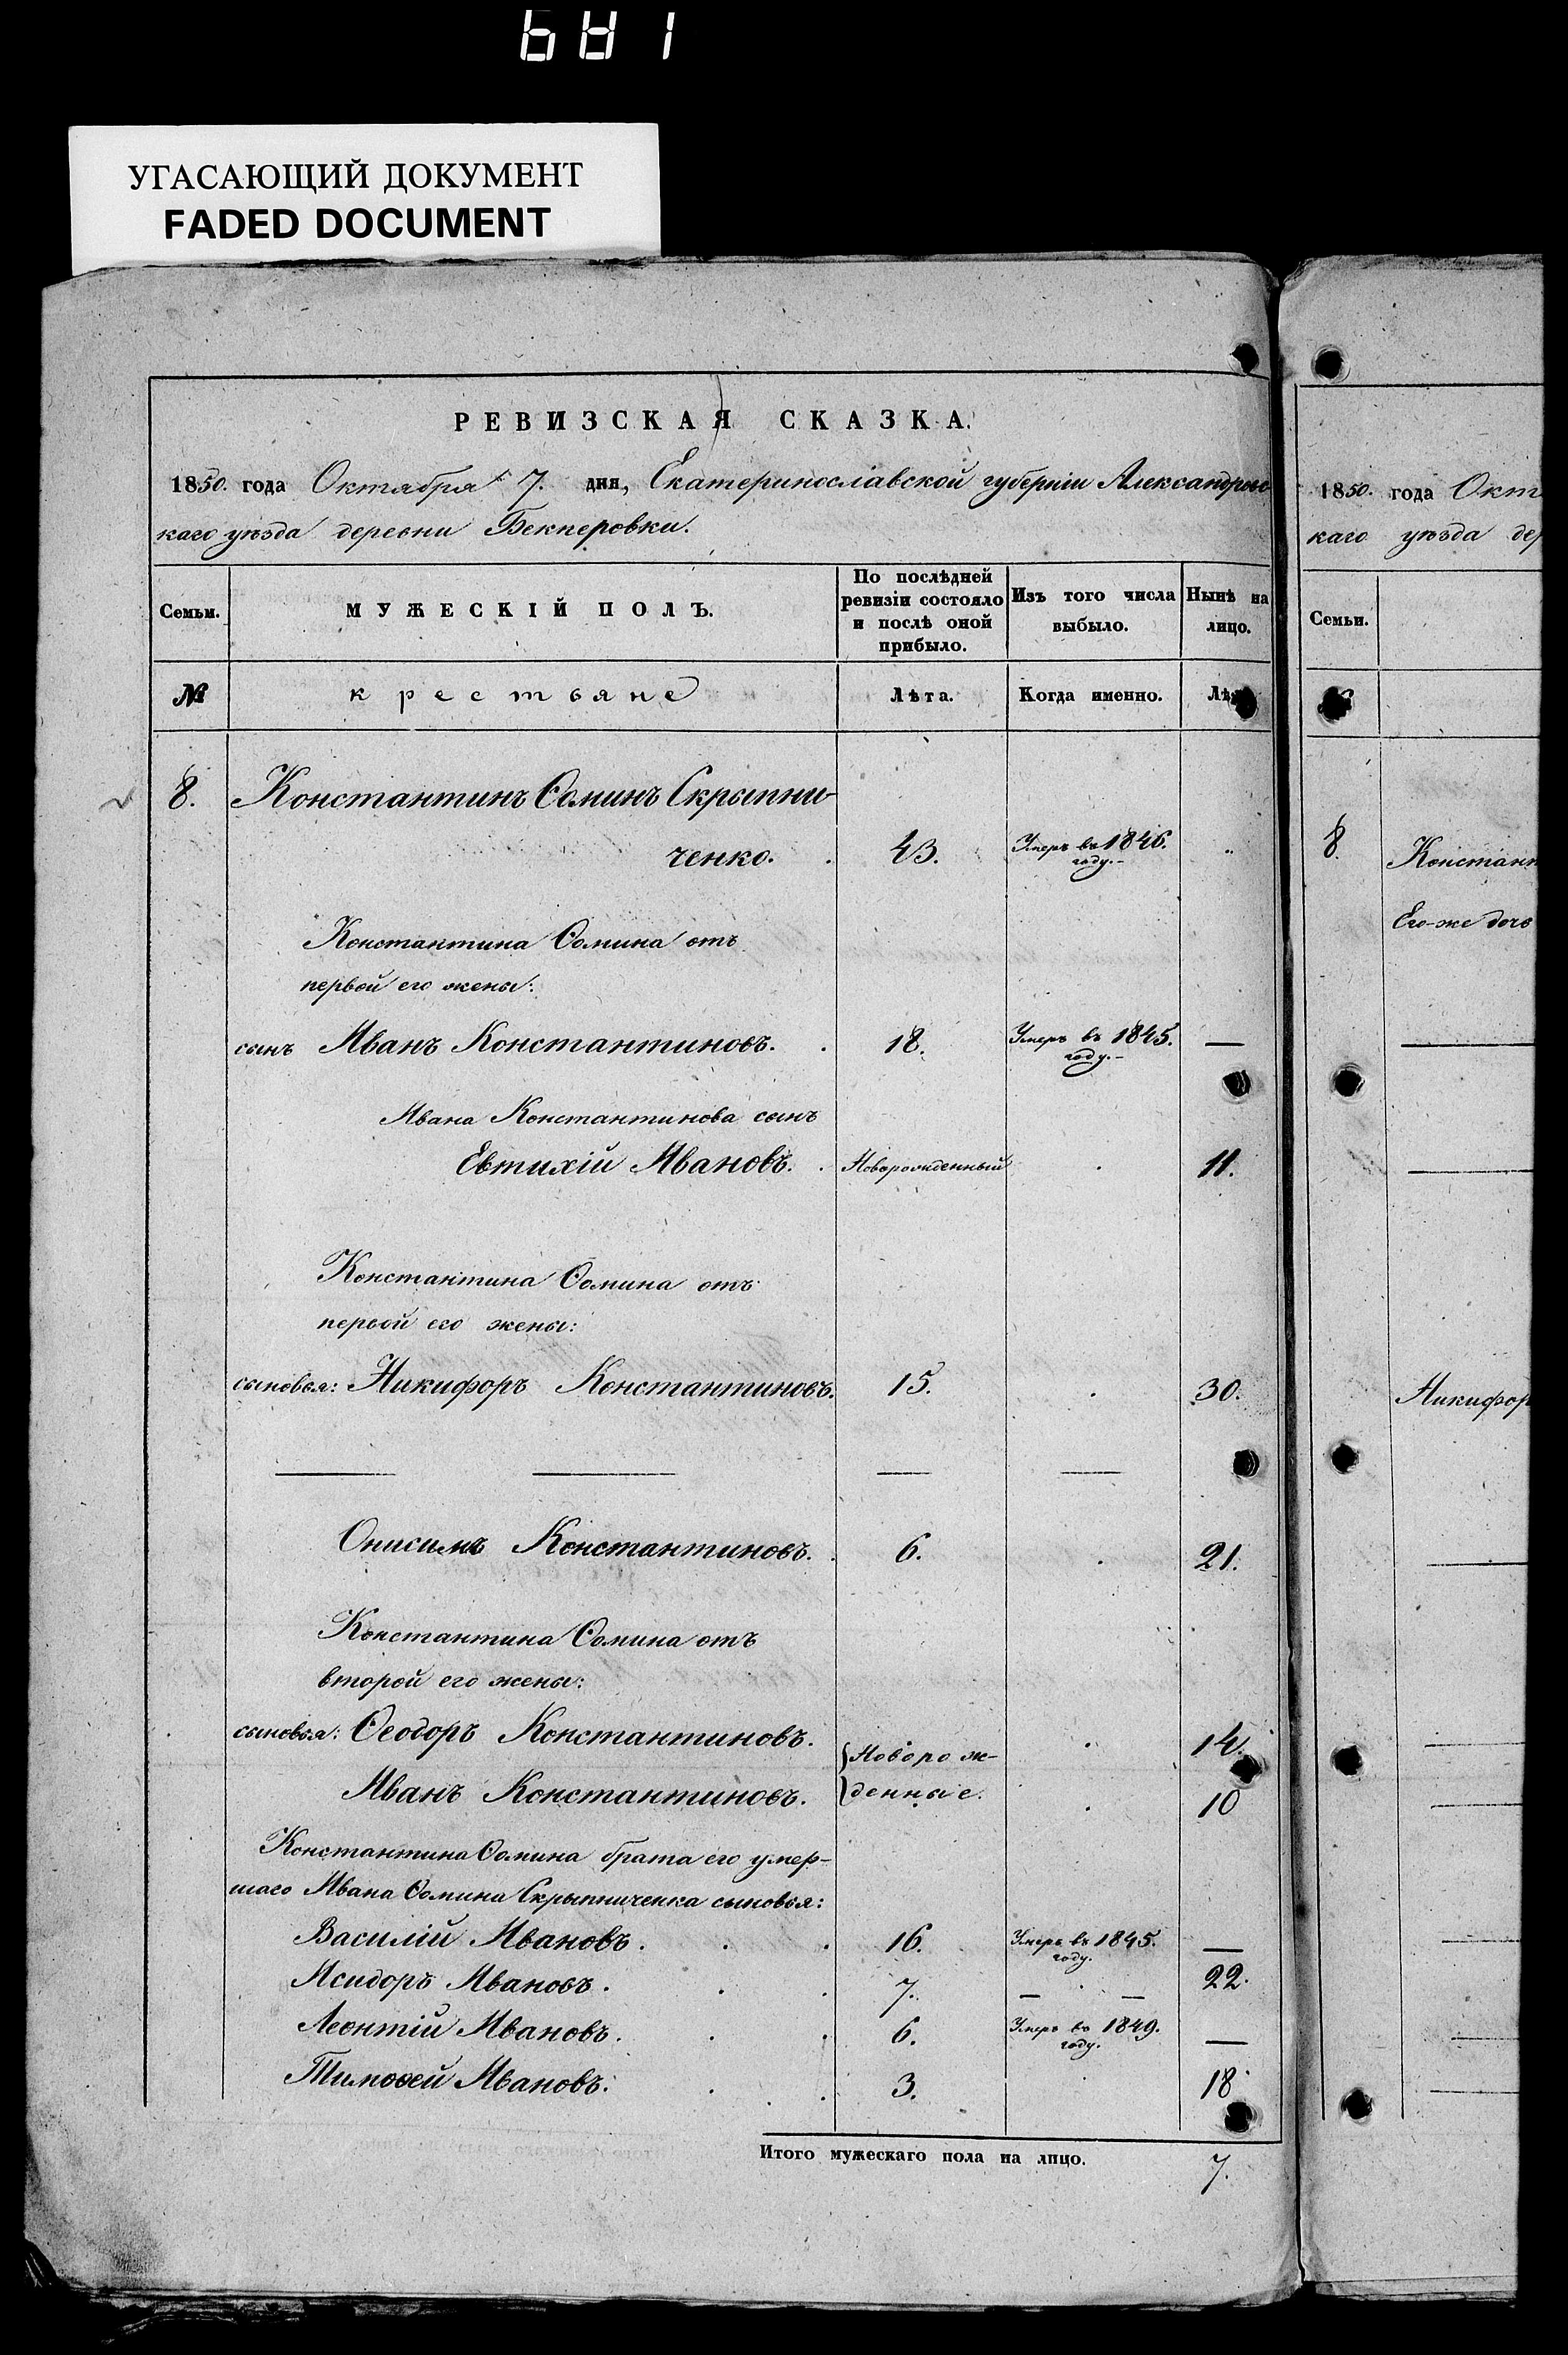 681
УГАСАЮЩИЙ ДОКУМЕНТ
FADED DOCUMENT
РЕВИЗСКАЯ СКАЗКА.
1850. года Октября 7. дня, Екатеринославской губерніи Александровс
каго уѣзда деревни Бекперовки.
Семьи. МУЖЕСКІЙ ПОЛЪ. По послѣдней ревизіи состояло и послѣ оной прибыло. Изъ того числа выбыло. Нынѣ на лицо.
№ крестьяне Лѣта. Когда именно. Лѣ
8. Константинъ Ѳоминъ Скрыпни-
ченко. 43. Умеръ въ 1846. году. „
Константина Ѳомина отъ
первой его жены:
сынъ Иванъ Константиновъ. 18. Умеръ въ 1845. году. —
Ивана Константинова сынъ
Евтихій Ивановъ. Новорожденный 11.
Константина Ѳомина отъ
первой его жены:
сыновья: Никифоръ Константиновъ. 15. 30.
— — — —
Онисимъ Константиновъ. 6. 21.
Константина Ѳомина отъ
второй его жены:
сыновья: Ѳеодоръ Константиновъ. Новорож- 14.
Иванъ Константиновъ. денные. 10
Константина Ѳомина брата его умер-
шаго Ивана Ѳомина Скрыпниченка сыновья:
Василій Ивановъ. 16. Умеръ въ 1845. году. —
Исидоръ Ивановъ. 7. — — 22.
Леонтій Ивановъ. 6. Умеръ въ 1849. году. —
Тимоѳей Ивановъ. 3. 18
Итого мужескаго пола на лицо. 7.
1850. года Окт
каго уѣзда дер
Семьи.
8. Констант
Его-же дочь
Никифор